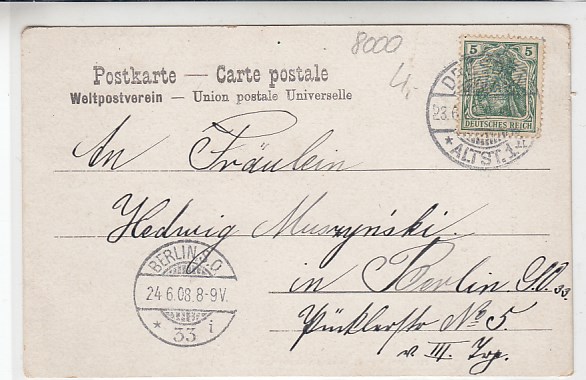 8000
4,-
Postkarte — Carte postale
Weltpostverein – Union postale Universelle
5 5
DEUTSCHES REICH
DR
23.6
* ALTST.1
An Fräulein
Hedwig Muszyński.
in Berlin S.O. 33
Pücklerstr No 5.
v III. Trp.
BERLIN S.O
24.6.08.8-9V.
* 33 i